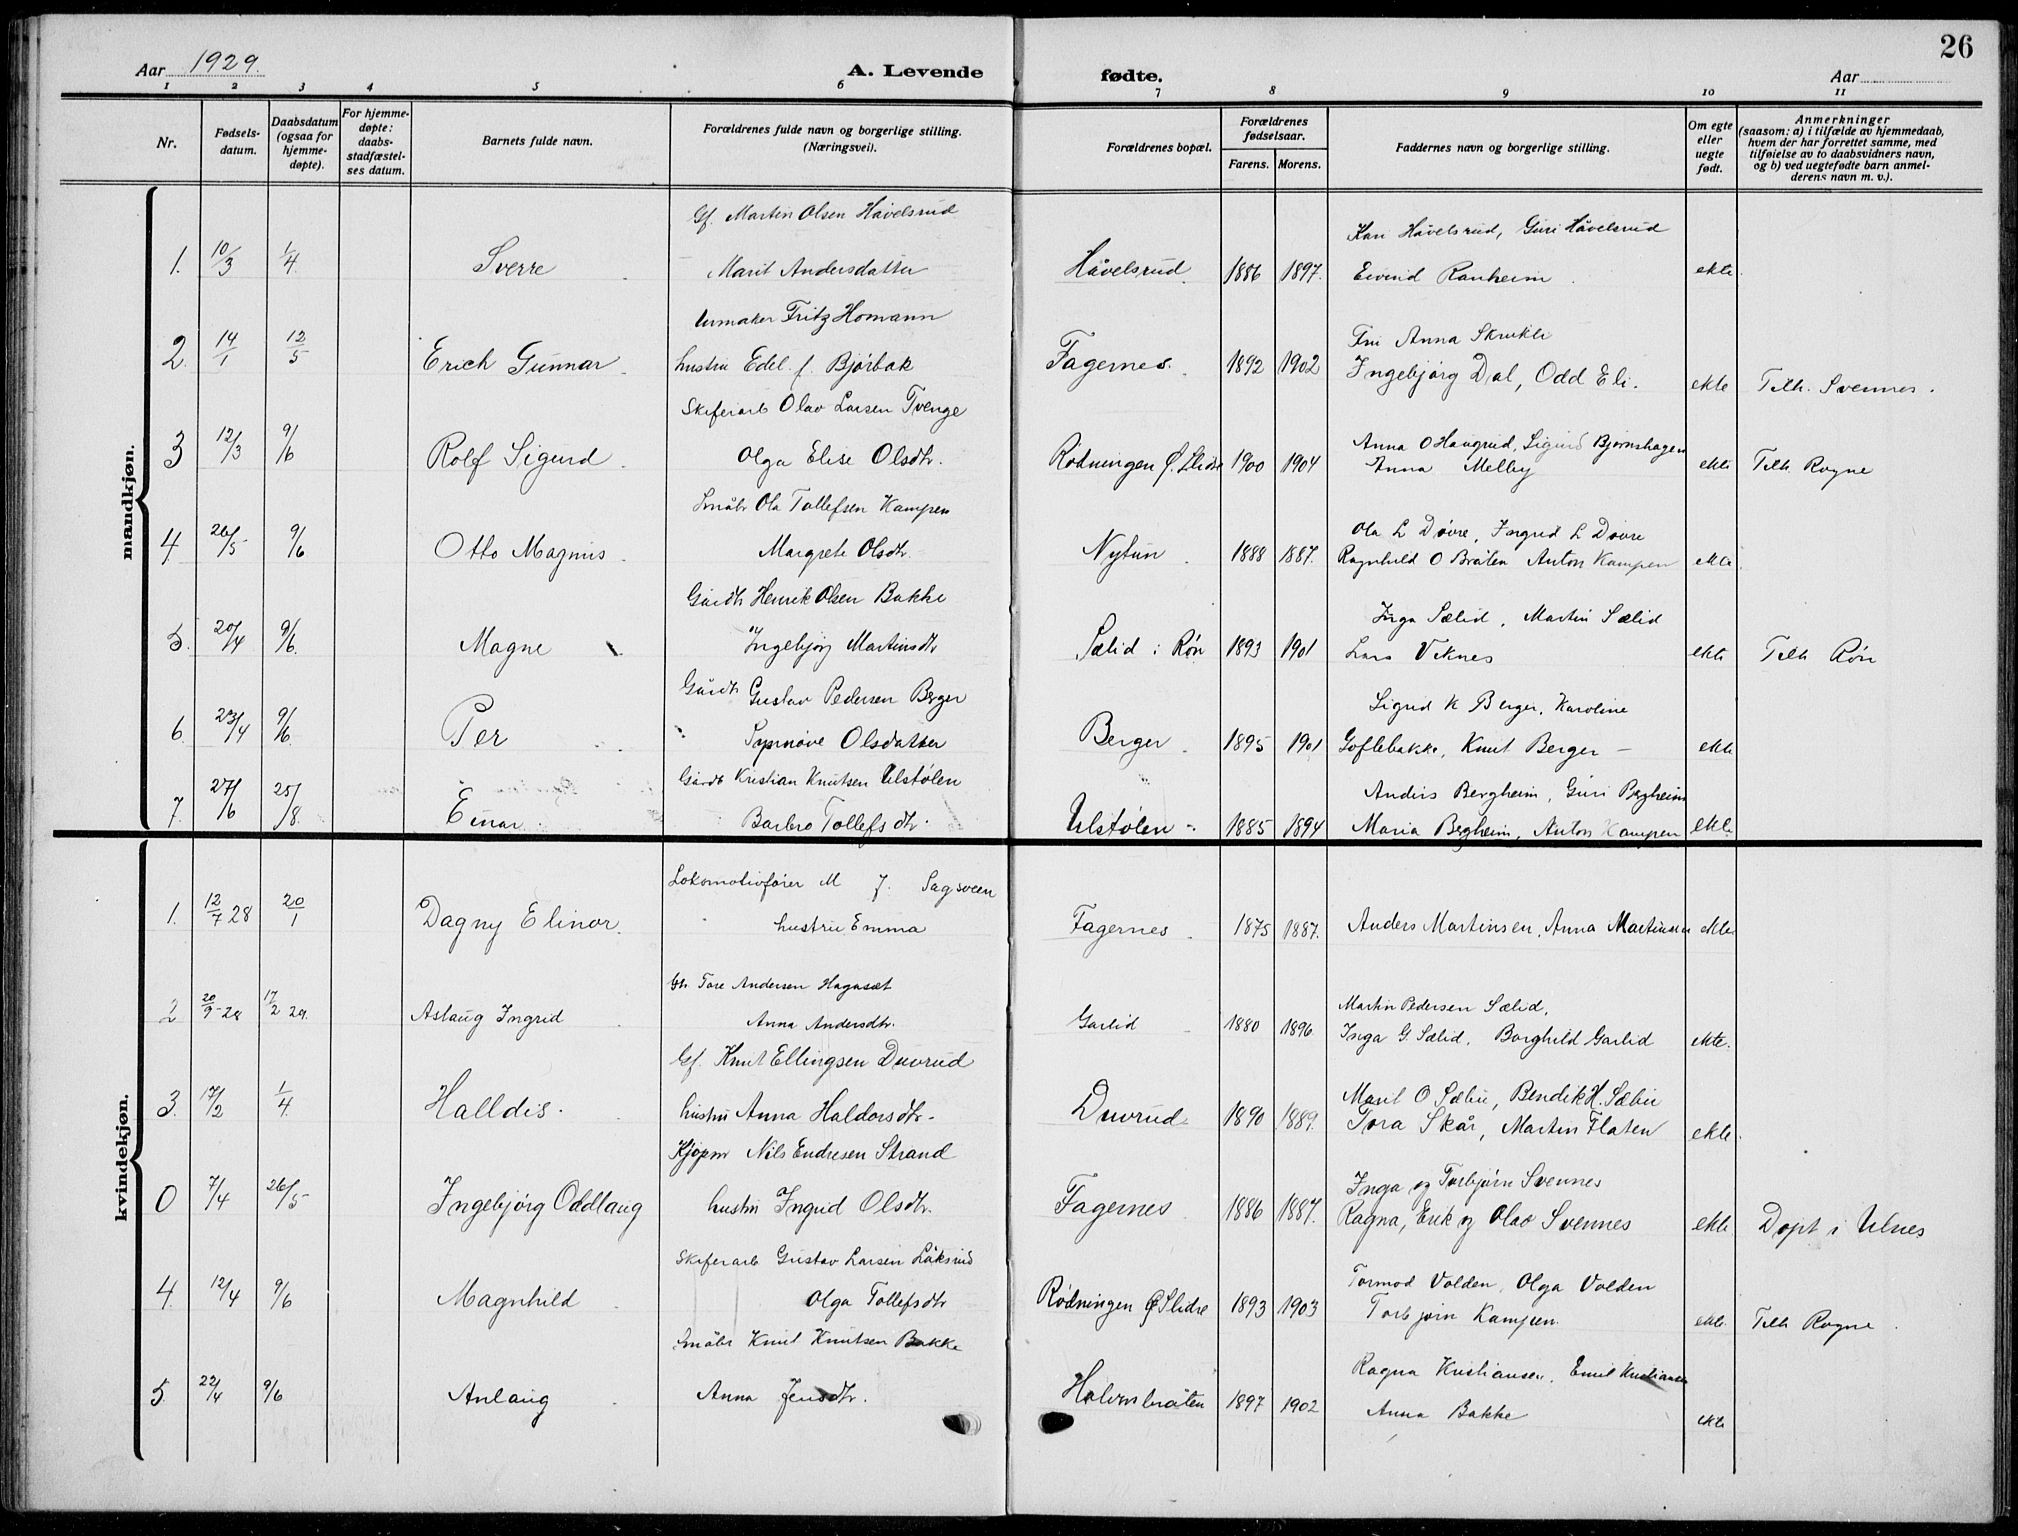 26
Aar 1929.
A. Levende
fødte.
Aar
1 2 3 4 5 6 7 8 9 10 11
Nr.
Fødsels-
datum.
Daabsdatum
(ogsaa for
hjemme-
døpte).
For hjemme-
døpte:
daabs-
stadfæstel-
ses datum.
Barnets fulde navn.
Forældrenes fulde navn og borgerlige stilling.
(Næringsvei).
Forældrenes bopæl.
Forældrenes
fødselsaar.
Farens. Morens.
Faddernes navn og borgerlige stilling.
Om egte
eller
uegte
født.
Anmerkninger
(saasom: a) i tilfælde av hjemmedaab,
hvem der har forrettet samme, med
tilføielse av to daabsvidners navn,
og b) ved uegtefødte barn anmel-
derens navn m. v.).
mandkjøn.
Gf. Martin Olsen Håvelsrud
Kari Håvelsrud, Guri Håvelsrud
1. 10/3 1/4 Sverre Marit Andersdatter Håvelsrud 1886 1897. Eivind Ranheim ekte
Urmaker Fritz Homann
Fru Anna Skrukli
2. 14/1 12/5 Erich Gunnar hustru Edel f. Bjørbak Fagernes. 1892 1902 Ingebjørg Dal, Odd Eli. ekte Tilh. Svennes.
Skiferarb Olav Larsen Tvenge
Anna O Haugrud, Sigurd Bjørnshagen
3 12/3 9/6 Rolf Sigurd Olga Elise Olsdtr. Rødningen Ø. Slidre 1900 1904 Anna Melby ekte Tilh. Rogne
Småbr Ola Tollefsen Kampen
Ola L Døvre, Ingrid L Døvre
4. 26/5 9/6 Otto Magnus Margrete Olsdtr. Nytun 1888 1887. Ragnhild O Bråten Anton Kampen ekte
Gårdbr Henrik Olsen Bakke
Inga Sælid, Martin Sælid
5. 20/4 9/6 Magne Ingebjørg Martinsdtr Sælid i Røn 1893 1901 Lars Viknes ekte Tilh Røn
Gårdbr Gustav Pedersen Berger
Sigrid K Berger, Karoline
6. 23/4 9/6 Per Synnøve Olsdatter Berger 1895 1901 Goflebakke, Knut Berger – ekte
Gårdb Kristian Knutsen Ulstølen
Anders Bergheim, Guri Bergheim
7. 27/6 25/8 Einar Barbro Tollefsdtr. Ulstølen 1885 1894 Maria Bergheim, Anton Kampen ekte
kvindekjøn.
Lokomotivfører M J. Sagsveen
1. 12/7 28 20/1 Dagny Elinor. hustru Emma Fagernes 1875 1887. Anders Martinsen, Anna Martinsen ekte
Gbr Tore Andersen Hagaset
Martin Pedersen Sælid,
2 20/9-28 17/2 29. Aslaug Ingrid Anna Andersdtr. Garlid 1880 1896 Inga G. Sælid, Borghild Garlid ekte.
Gf. Knut Ellingsen Duvrud
Marit O Sæbu, Bendik H. Sæbu
3. 17/2 1/4 Halldis. hustru Anna Haldorsdtr. Duvrud. 1890 1889. Tora Skår, Martin Flaten ekte.
Kjøpm Nils Endresen Strand
Inga og Torbjørn Svennes
0 7/4 26/5 Ingebjørg Oddlaug hustru Ingrid Olsdtr. Fagernes 1886 1887. Ragna, Erik og Olav Svennes ekte Døpt i Ulnes
Skiferarb Gustav Larsen Låksrud
Tormod Volden, Olga Volden
4. 12/4 9/6 Magnhild Olga Tollefsdtr Rødningen Ø Slidre 1893 1903 Torbjørn Kampen. ekte. Tilh Rogne
Småbr Knut Knutsen Bakke
Ragna Kristiansen, Emil Kristiansen
5. 22/4 9/6 Anlaug Anna Jensdtr. Holmsbråten 1897 1902 Anna Bakke ekte